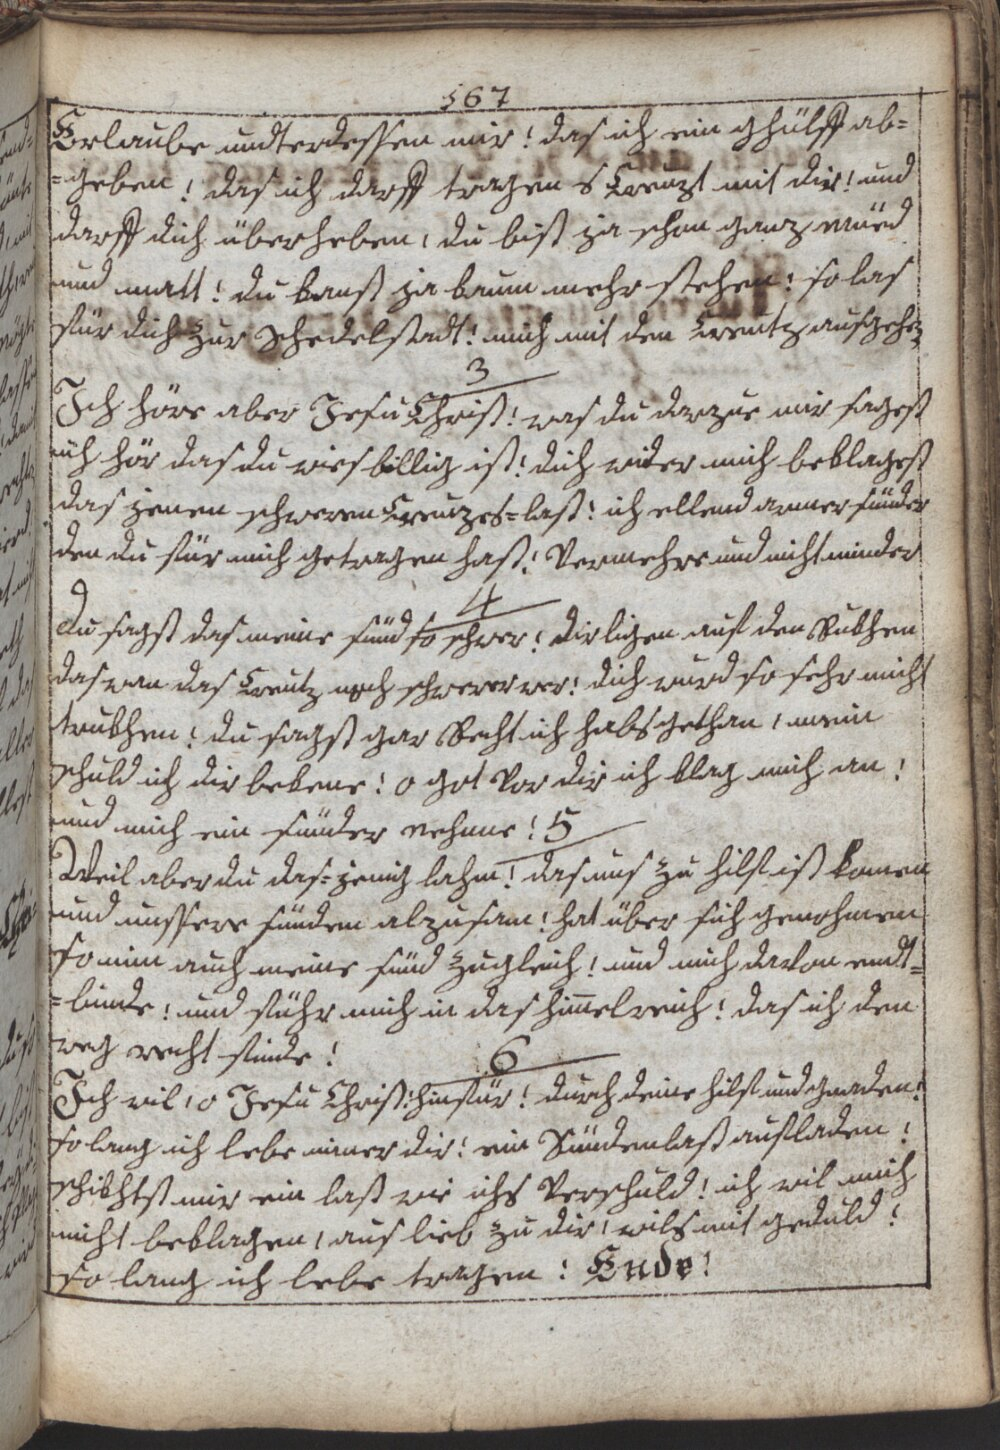 167
Erlaube undterdessen mir! das ich ein ghülff ab=
=geben! das ich darff tragen s Creuzt mit dir! und
darff dich überheben, du bist ja schon ganz müed
und matt! du kanst ja kaum mehr stehen! so las
für dich zur schedelstadt! mich mit den Creutz
3
Ich höre aber Jesu Christ! was du darzue mir sagest
ich hör das du wies billig ist! dich wider mich beklagest
das jenen schweren Creuzes=last! ich ellend armer sünder
den du für mich getragen hast! Vermehre und nicht minder
4
du sagst das meine sünd so schwer! dir ligen auf den Rukhen
das wan das Creutz noch schwerer wer! dich wurd so sehr nicht
trukhen! du sagst gar Recht ich habs gethan, mein
schuld ich dir bekene! o got Vor dir ich klag mich an!
und mich ein sünder nehnne! 5
Weil aber du das=jenig lahm! das uns zu hilf ist komen
und unssere sünden alzusam! hat über sich genohmen
so nim auch meine sünd zugleich! und mich davon endt=
=binde! und führ mich in das him̄elreich! das ich den
weg recht finde! 6
Ich wil, o Jesu Christ! hinfür! durch deine hilf und gnaden!
so lang ich lebe nimer dir! ein Sündenlast aufladen!
schikhtst mir ein last wie ichs Verschuld! ich wil mich
nicht beklagen, aus lieb zu dir, wils mit geduld!
so lang ich lebe tragen! Ende!